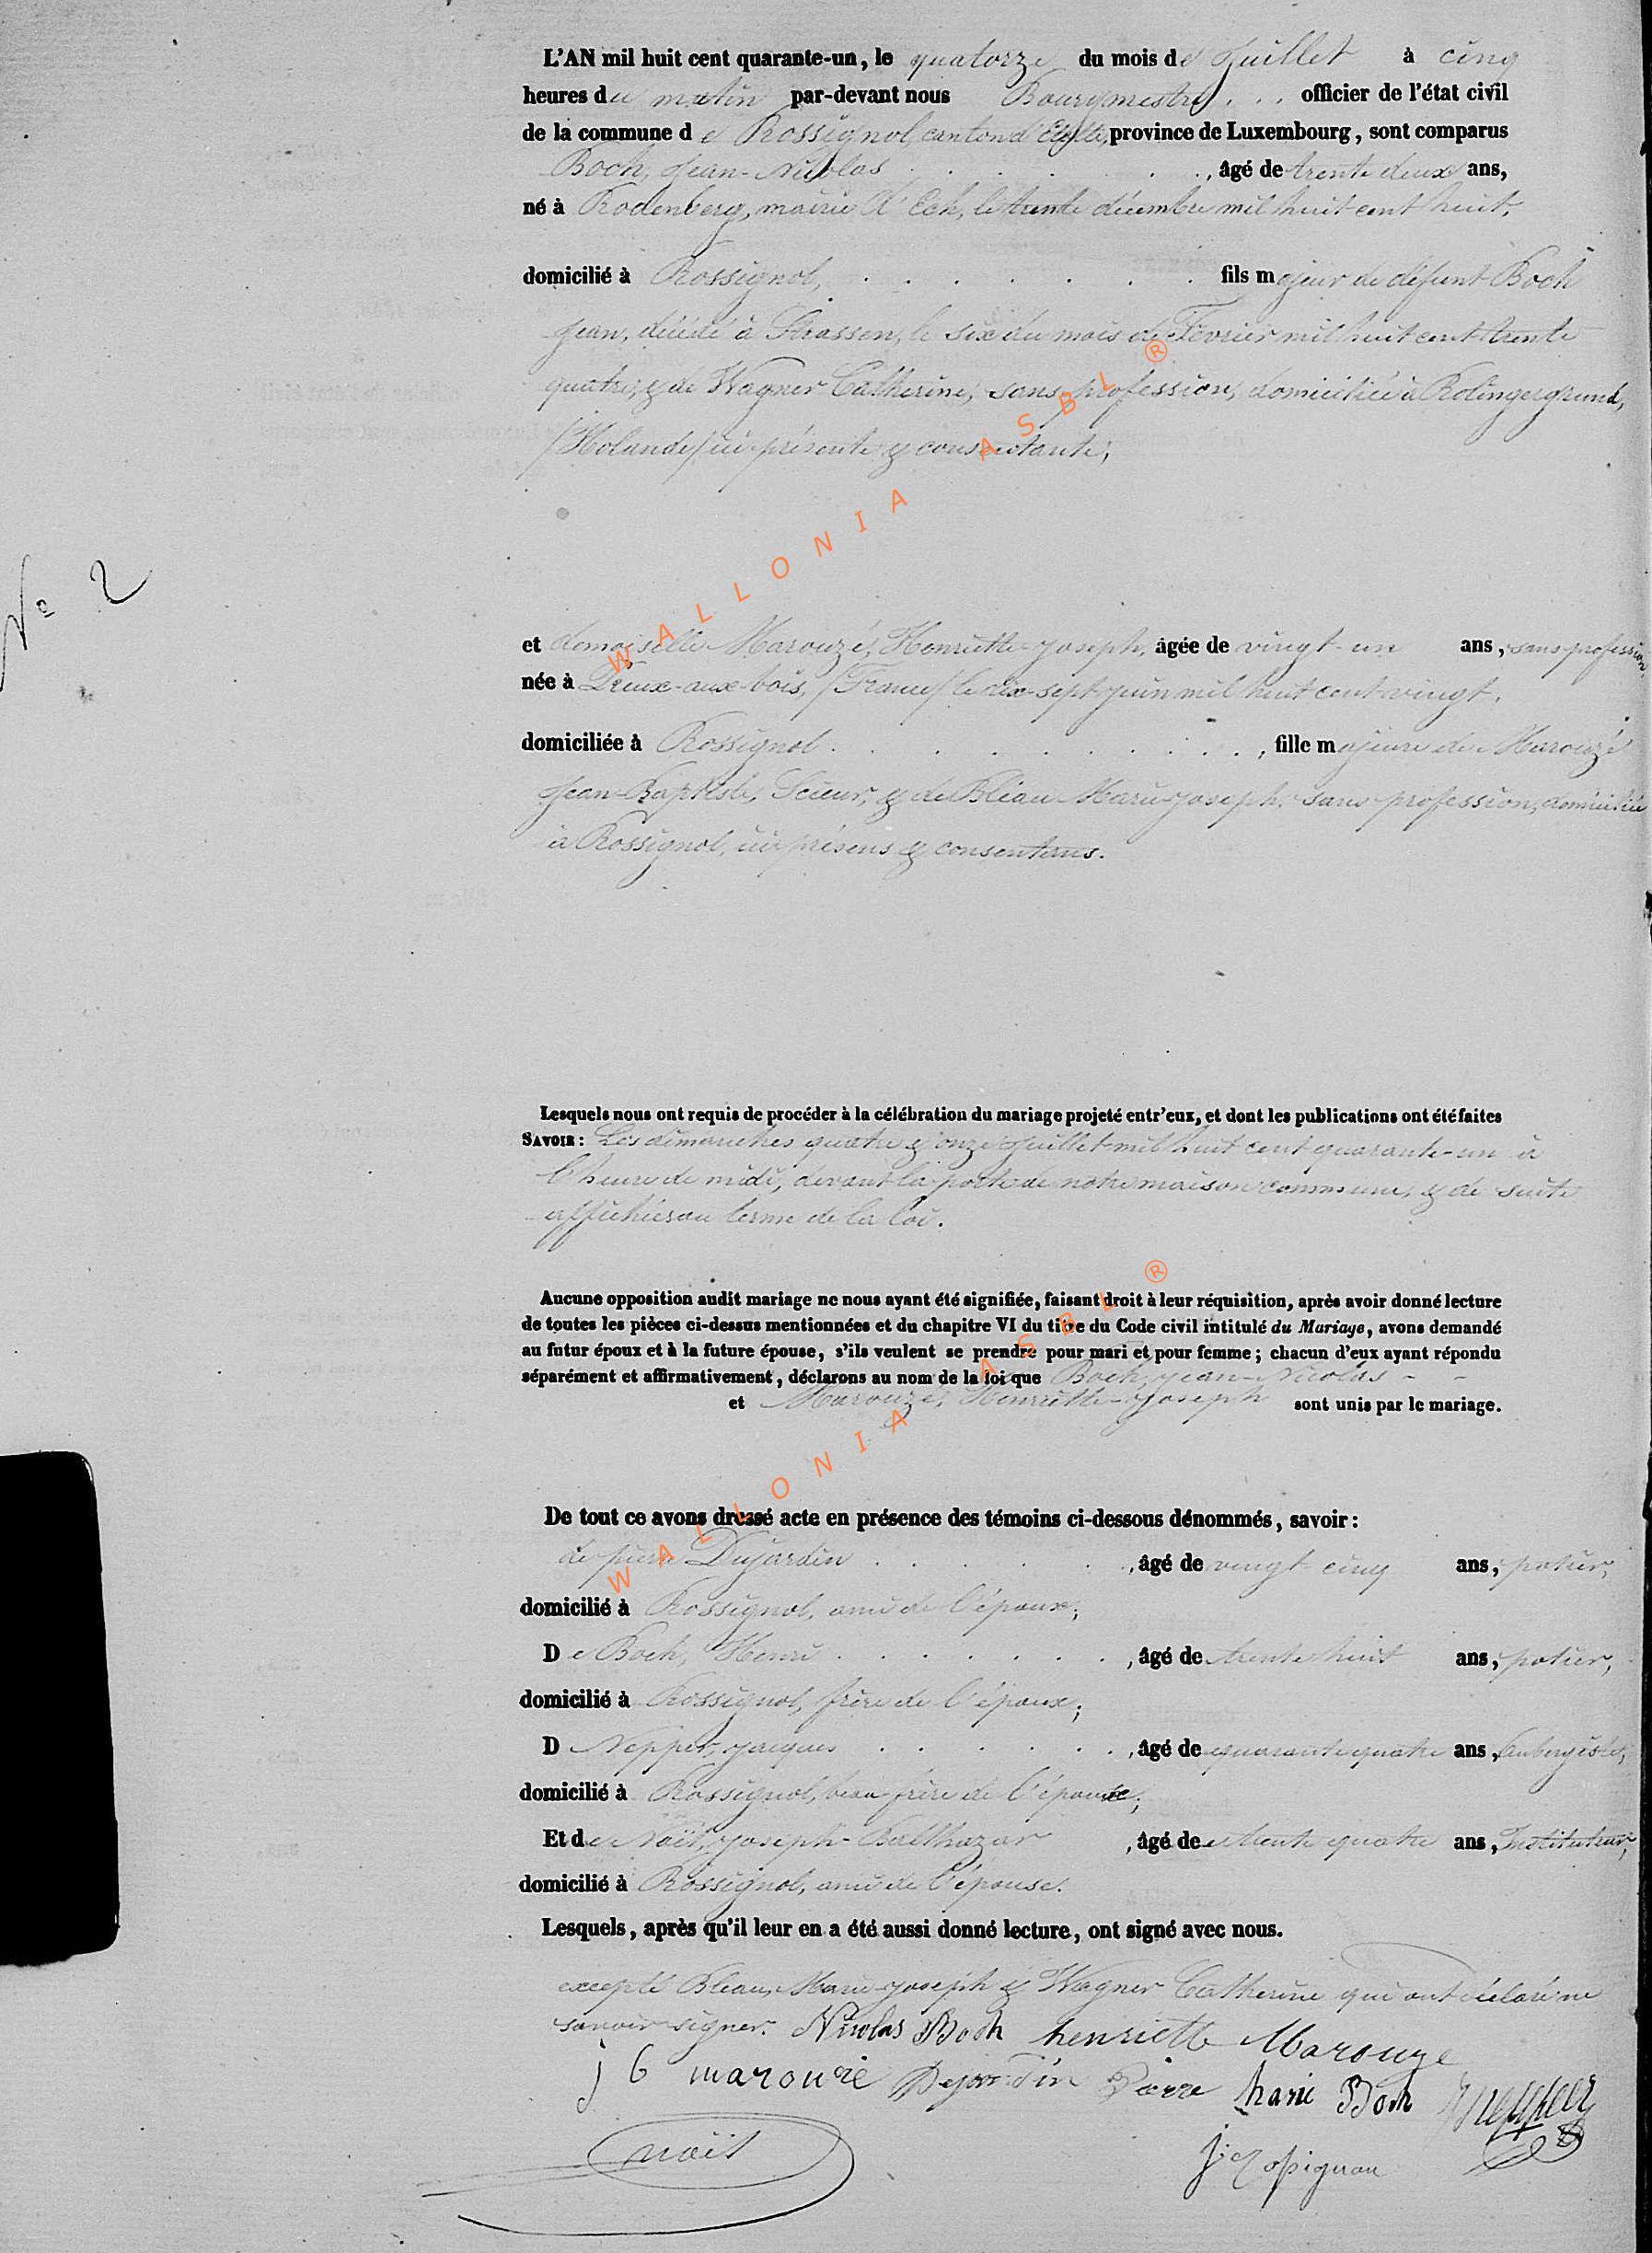 L'AN mil huit cent quarante-un, le quatorze du mois de Juillet à cinq
heures du matin par-devant nous Bourgmestre . . . officier de l'état civil
de la commune de Rossignol, canton d'Etalle, province de Luxembourg, sont comparus
Boch, Jean-Nicolas . . . . , âgé de trente deux ans,
né à Rodenberg, mairie d'Eck, le trente décembre mil huit cent huit,
domicilié à Rossignol, . . . . . . . fils majeur de défunt Boch
Jean, décédé à Strassen, le six du mois de Février mil huit cent trente
quatre, & de Wagner Catherine, sans profession, domiciliée à Rolingergrund,
/Holande/ ici présente & consentante;
No 2
et demoiselle Marouzé, Henriette-Joseph, âgée de vingt-un ans, sans profession
née à Dieux-aux-bois, /France/ le dix-sept juin mil huit cent vingt,
domiciliée à Rossignol . . . . . . . . . . , fille majeure de Marouzé
Jean-Baptiste, Scieur, & de Bléau Marie-Joseph, sans profession, domiciliés
à Rossignol, ici présens & consentans.
Lesquels nous ont requis de procéder à la célébration du mariage projeté entr'eux, et dont les publications ont été faites
SAVOIR : Les dimanches quatre & onze Juillet mil huit cent quarante-un à
l'heure de midi, devant la porte de notre maison commune, & de suite
affichies au terme de la loi.
Aucune opposition audit mariage ne nous ayant été signifiée, faisant droit à leur réquisition, après avoir donné lecture
de toutes les pièces ci-dessus mentionnées et du chapitre VI du titre du Code civil intitulé du Mariage, avons demandé
au futur époux et à la future épouse, s'ils veulent se prendre pour mari et pour femme ; chacun d'eux ayant répondu
séparément et affirmativement, déclarons au nom de la loi que Boch, Jean-Nicolas - -
et Marouzé, Henriette-Joseph sont unis par le mariage.
De tout ce avons dressé acte en présence des témoins ci-dessous dénommés, savoir :
de pierre Dujardin . . . . . . , âgé de vingt cinq ans, potier,
domicilié à Rossignol, ami de l'époux;
De Boch, Henri . . . . . . . , âgé de trente huit ans, potier,
domicilié à Rossignol, frère de l'époux;
D Nepper, Jacques . . . . . . , âgé de quarante quatre ans, aubergiste,
domicilié à Rossignol, beau-frère de l'épouse;
Et de Noïl, Joseph-Balthazar , âgé de trente quatre ans, Instituteur,
domicilié à Rossignol, ami de l'épouse.
Lesquels, après qu'il leur en a été aussi donné lecture, ont signé avec nous.
excepté Bleau, Marie-Joseph & Wagner Catherine qui ont déclaré ne
savoir signer. Nicolas Boch henriette Marouze
j b Dujardin Pierre Boch
noïl
WALLONIA ASBL ®
WALLONIA ASBL ®